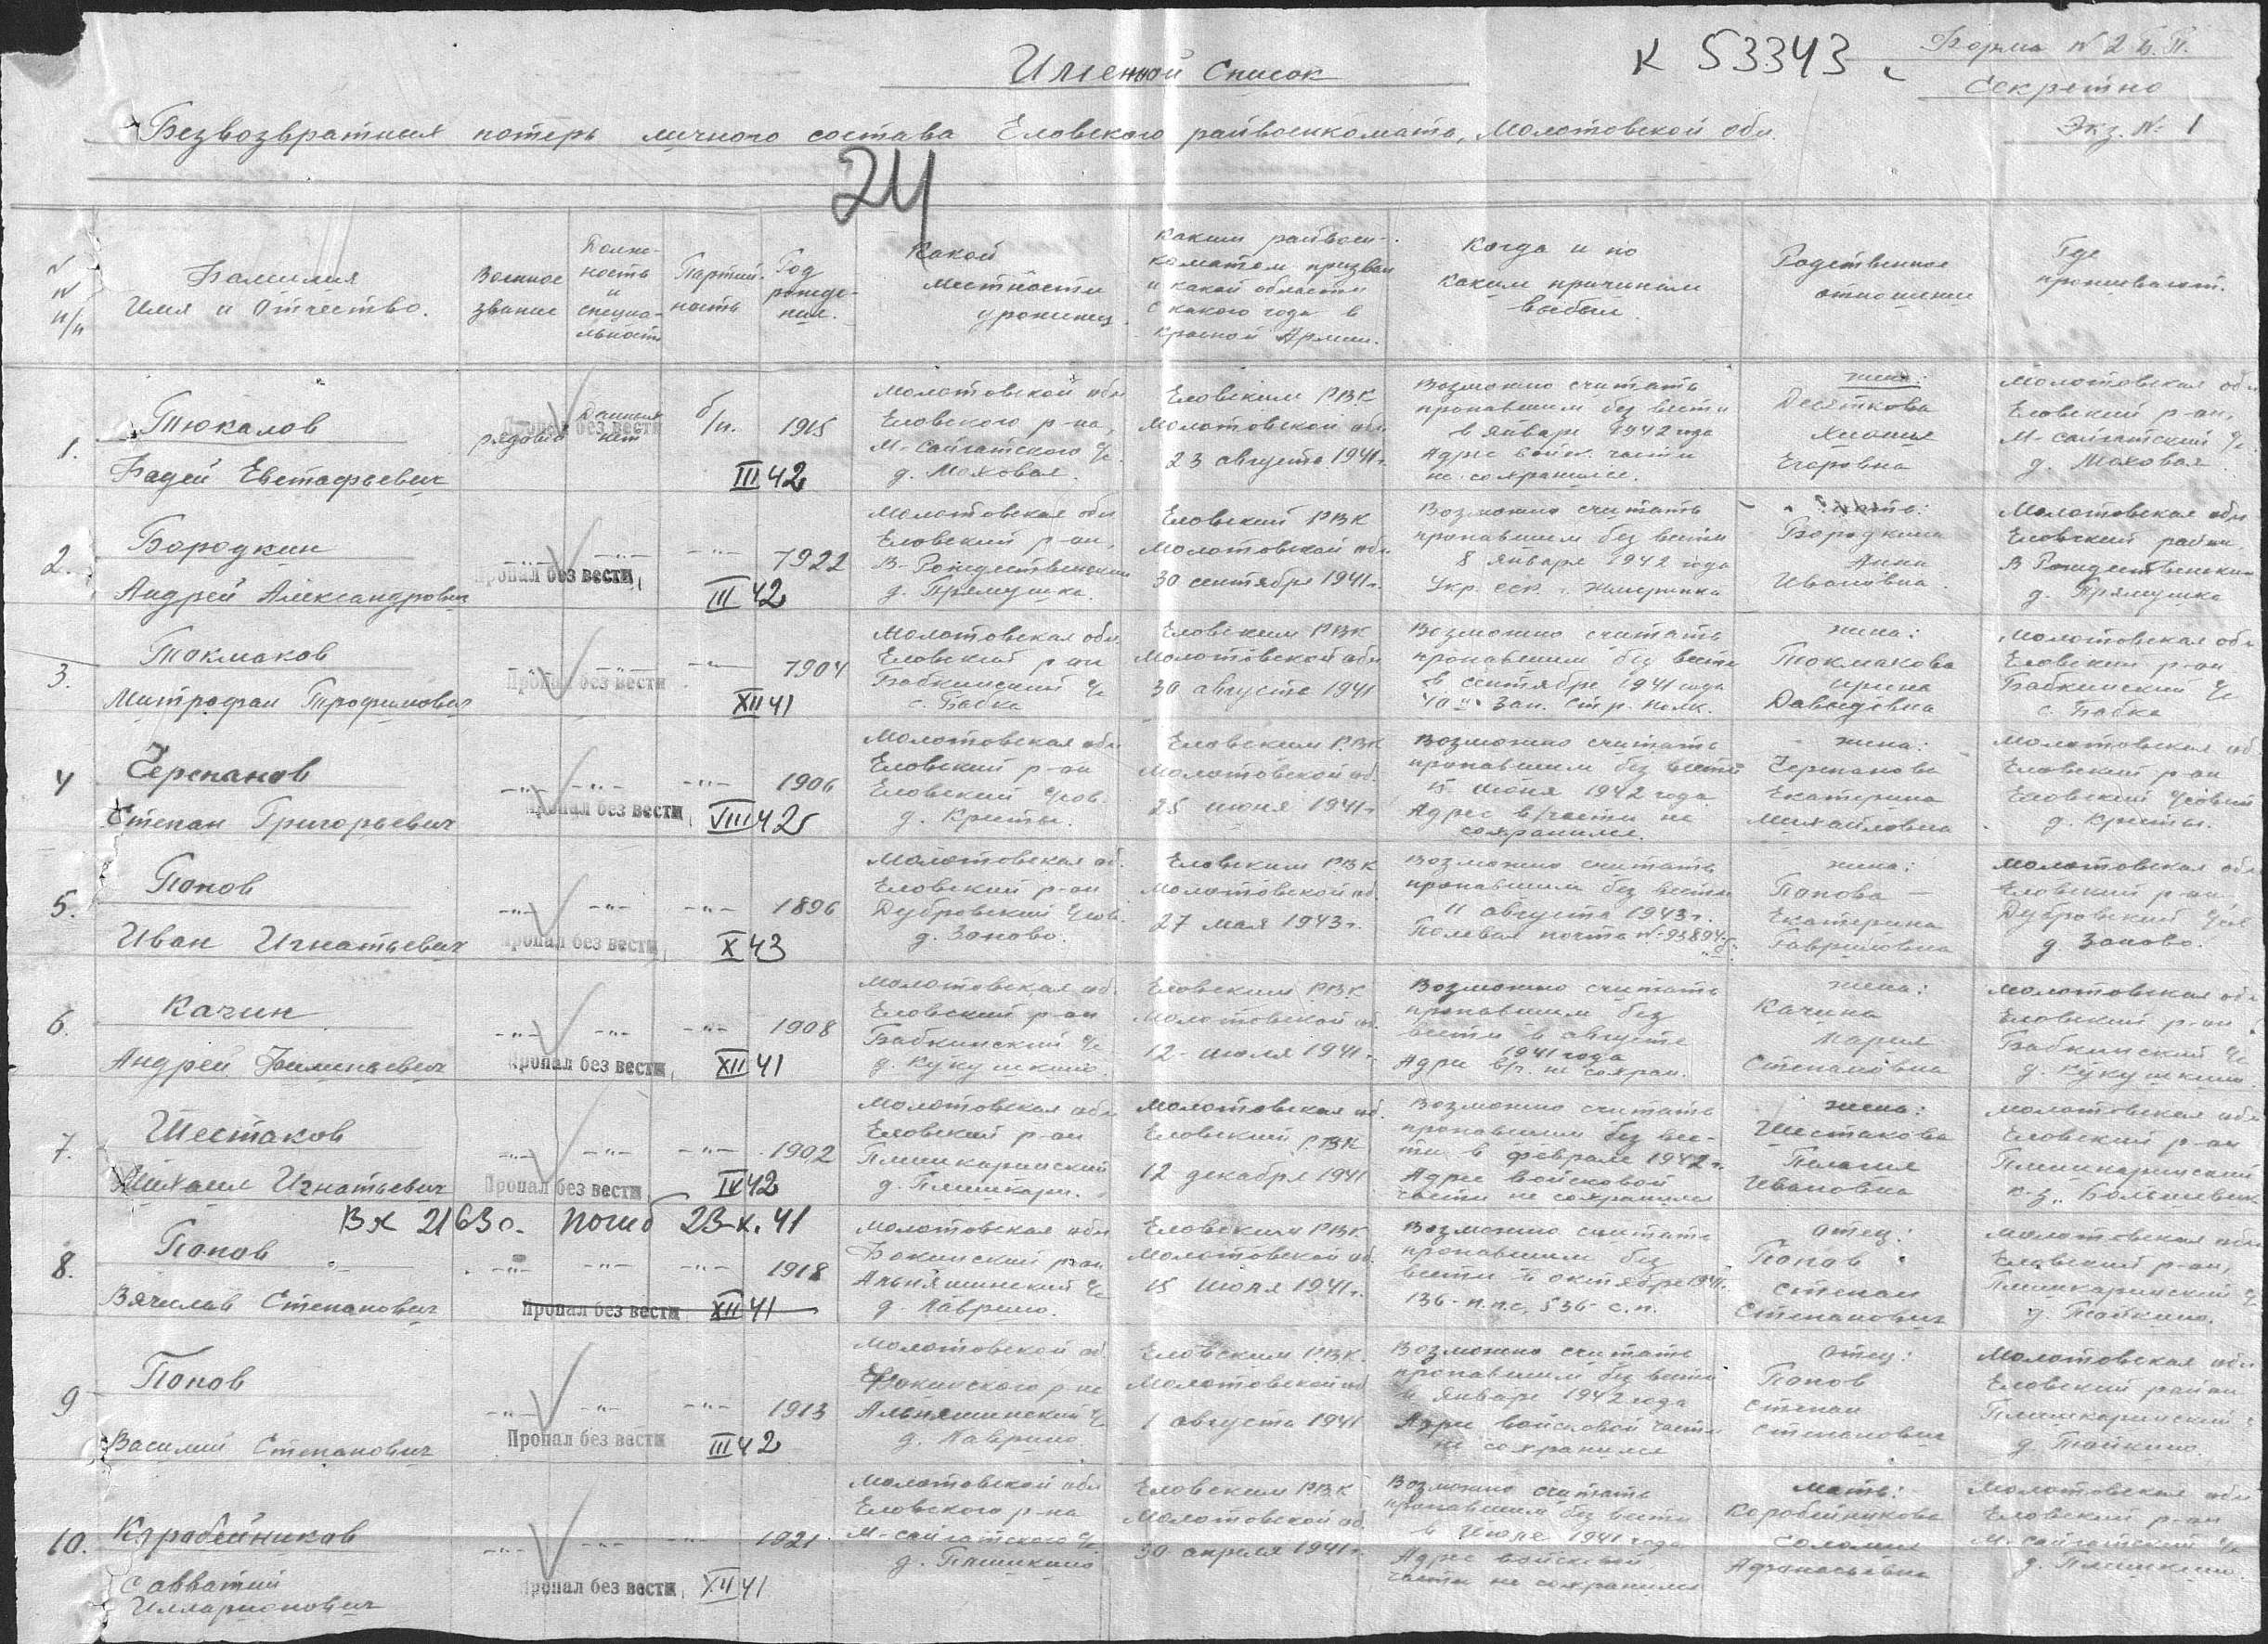 К 53343
Форма N 2 Б.П.
Секретно
Экз. № 1
Именной Список
Безвозвратных потерь личного состава Еловского райвоенкомата, Молотовской обл.
24
N N п/п
Фамилия Имя и Отчество.
Военное звание
Должность и специальность
Партийность
Год рождения.
Какой местности уроженец
Каким райвоенкоматом призван и какой области с какого года в Красной Армии.
Когда и по каким причинам выбыл.
Родственное отношение
Где проживают.
1.
Тюкалов
Фадей Евстафьевич
рядовой
Данных нет
Пропал без вести
б/п.
1915
III 42
Молотовской обл
Еловского р-на,
М-Сайгатского с/с
д. Моховая.
Еловским РВК
Молотовской обл
23 августа 1941 г.
Возможно считать
пропавшим без вести
в январе 1942 года
Адрес войск. части
не сохранился.
жена:
Десяткова
Егоровна
Молотовская обл
Еловский р-он,
М-Сайгатский с/с
д. Моховая
2.
Бородкин
Андрей Александрович
-"- -"-
1922
Пропал без вести
III 42
Молотовская обл
Еловский р-он,
В-Рождественский
д. Прямушка.
Еловский РВК
Молотовской обл
30 сентября 1941 г.
Возможно считать
пропавшим без вести
8 января 1942 года
Укр. ССР. г. Жмеринка
Бородкина
Анна
Ивановна
Молотовская обл
Еловский район,
В Рождественский
д. Прямушка
3.
Токмаков
Митрофан Трофимович
-"- -"- -"-
1904
Пропал без вести
XII 41
Молотовская обл.
Еловский р-он
Бабкинский с/с
с. Бабка
Еловским РВК
Молотовской обл
30 августа 1941
Возможно считать
пропавшим без вести
в сентябре 1941 года
Зап. Стр. полк.
жена:
Токмакова
Ирина
Давыдовна
Молотовская обл
Еловский р-он
Бабкинский с/с
с. Бабка
4
Черепанов
Степан Григорьевич
-"- -"- -"-
1906
Пропал без вести
VIII 42
Молотовская обл
Еловский р-он
Еловский с/сов.
д. Кресты.
Еловским РВК
Молотовской об.
25 июня 1941 г
Возможно считать
пропавшим без вести
15 июня 1942 года
Адрес в/части не
сохранился.
жена:
Черепанова
Екатерина
Михайловна
Молотовская об
Еловский р-он
Еловский с/совет
д. Кресты.
5.
Попов
Иван Игнатьевич
-"- -"- -"-
1896
Пропал без вести
X 43
Молотовская об.
Еловский р-он
Дубровский с/сов.
д. Заново.
Еловским РВК
Молотовской об.
27 мая 1943 г.
Возможно считать
пропавшим без вести
11 августа 1943 г.
Полевая почта №-93894
жена:
Попова
Екатерина
Гавриловна
Молотовская обл
Еловский р-он
Дубровский с/с
д. Заново.
6.
Качин
Андрей Филипьевич
-"- -"- -"-
1908
Пропал без вести
XII 41
Молотовская об.
Еловский р-он
Бабкинский с/с
д. Кукушкино.
Еловским РВК
Молотовской об.
12 июля 1941 г.
Возможно считать
пропавшим без
вести в августе
1941 года
Адрес в/ч. не сохран.
жена:
Качина
Мария
Степановна
Молотовская обл
Еловский р-он
Бабкинский с/с
д. Кукушкино
7.
Шестаков
Михаил Игнатьевич
-"- -"- -"-
1902
Пропал без вести
IV 42
Молотовская обл
Еловский р-он
Плишкаринский
д. Плишкари.
Молотовская об.
Еловский РВК
12 декабря 1941
Возможно считать
пропавшим без вес-
ти в феврале 1942 г.
Адрес войсковой
части не сохранился
жена:
Шестакова
Пелагея
Ивановна
Молотовская обл
Еловский р-он
Плишкаринский
к-з „Большевик
Вх 2163с. погиб 23-X.41
8.
Попов
Вячеслав Степанович
-"- -"- -"-
1918
Пропал без вести
XII 41
Молотовская обл
Фокинский р-он
Альняшинский с/с
д. Лаврино.
Еловским РВК
Молотовской об.
15 июля 1941 г.
Возможно считать
пропавшим без
вести в октябре 1941 г.
136-п.п.с, 536-с.п.
отец:
Попов
Степан
Степанович
Молотовская обл
Еловский р-он,
Плишкаринский с/с
9
Попов
Василий Степанович
-"- -"- -"-
1913
Пропал без вести
III 42
Молотовской об
Фокинского р-на
Альняшинский с/с
д. Лаврино
Еловским РВК.
Молотовской об
1 августа 1941
Возможно считать
пропавшим без вести
в январе 1942 года
Адрес войсковой части
не сохранился
отец:
Попов
Степан
Степанович
Молотовская обл
Еловский район
Плишкаринский с
10.
Коробейников
Савватий
Илларионович
-"- -"- -"-
1921
Пропал без вести
XII 41
Молотовской обл
Еловского р-на
М-Сайгатского с/с
д. Плишкино
Еловским РВК
Молотовской об.
30 апреля 1941 г.
Возможно считать
пропавшим без вести
в июле 1941 года
Адрес войсковой
части не сохранился
мать:
Коробейникова
Соломия
Афонасьевна
Молотовская обл
Еловский р-он
М-Сайгатский с/с
д. Плишкино.